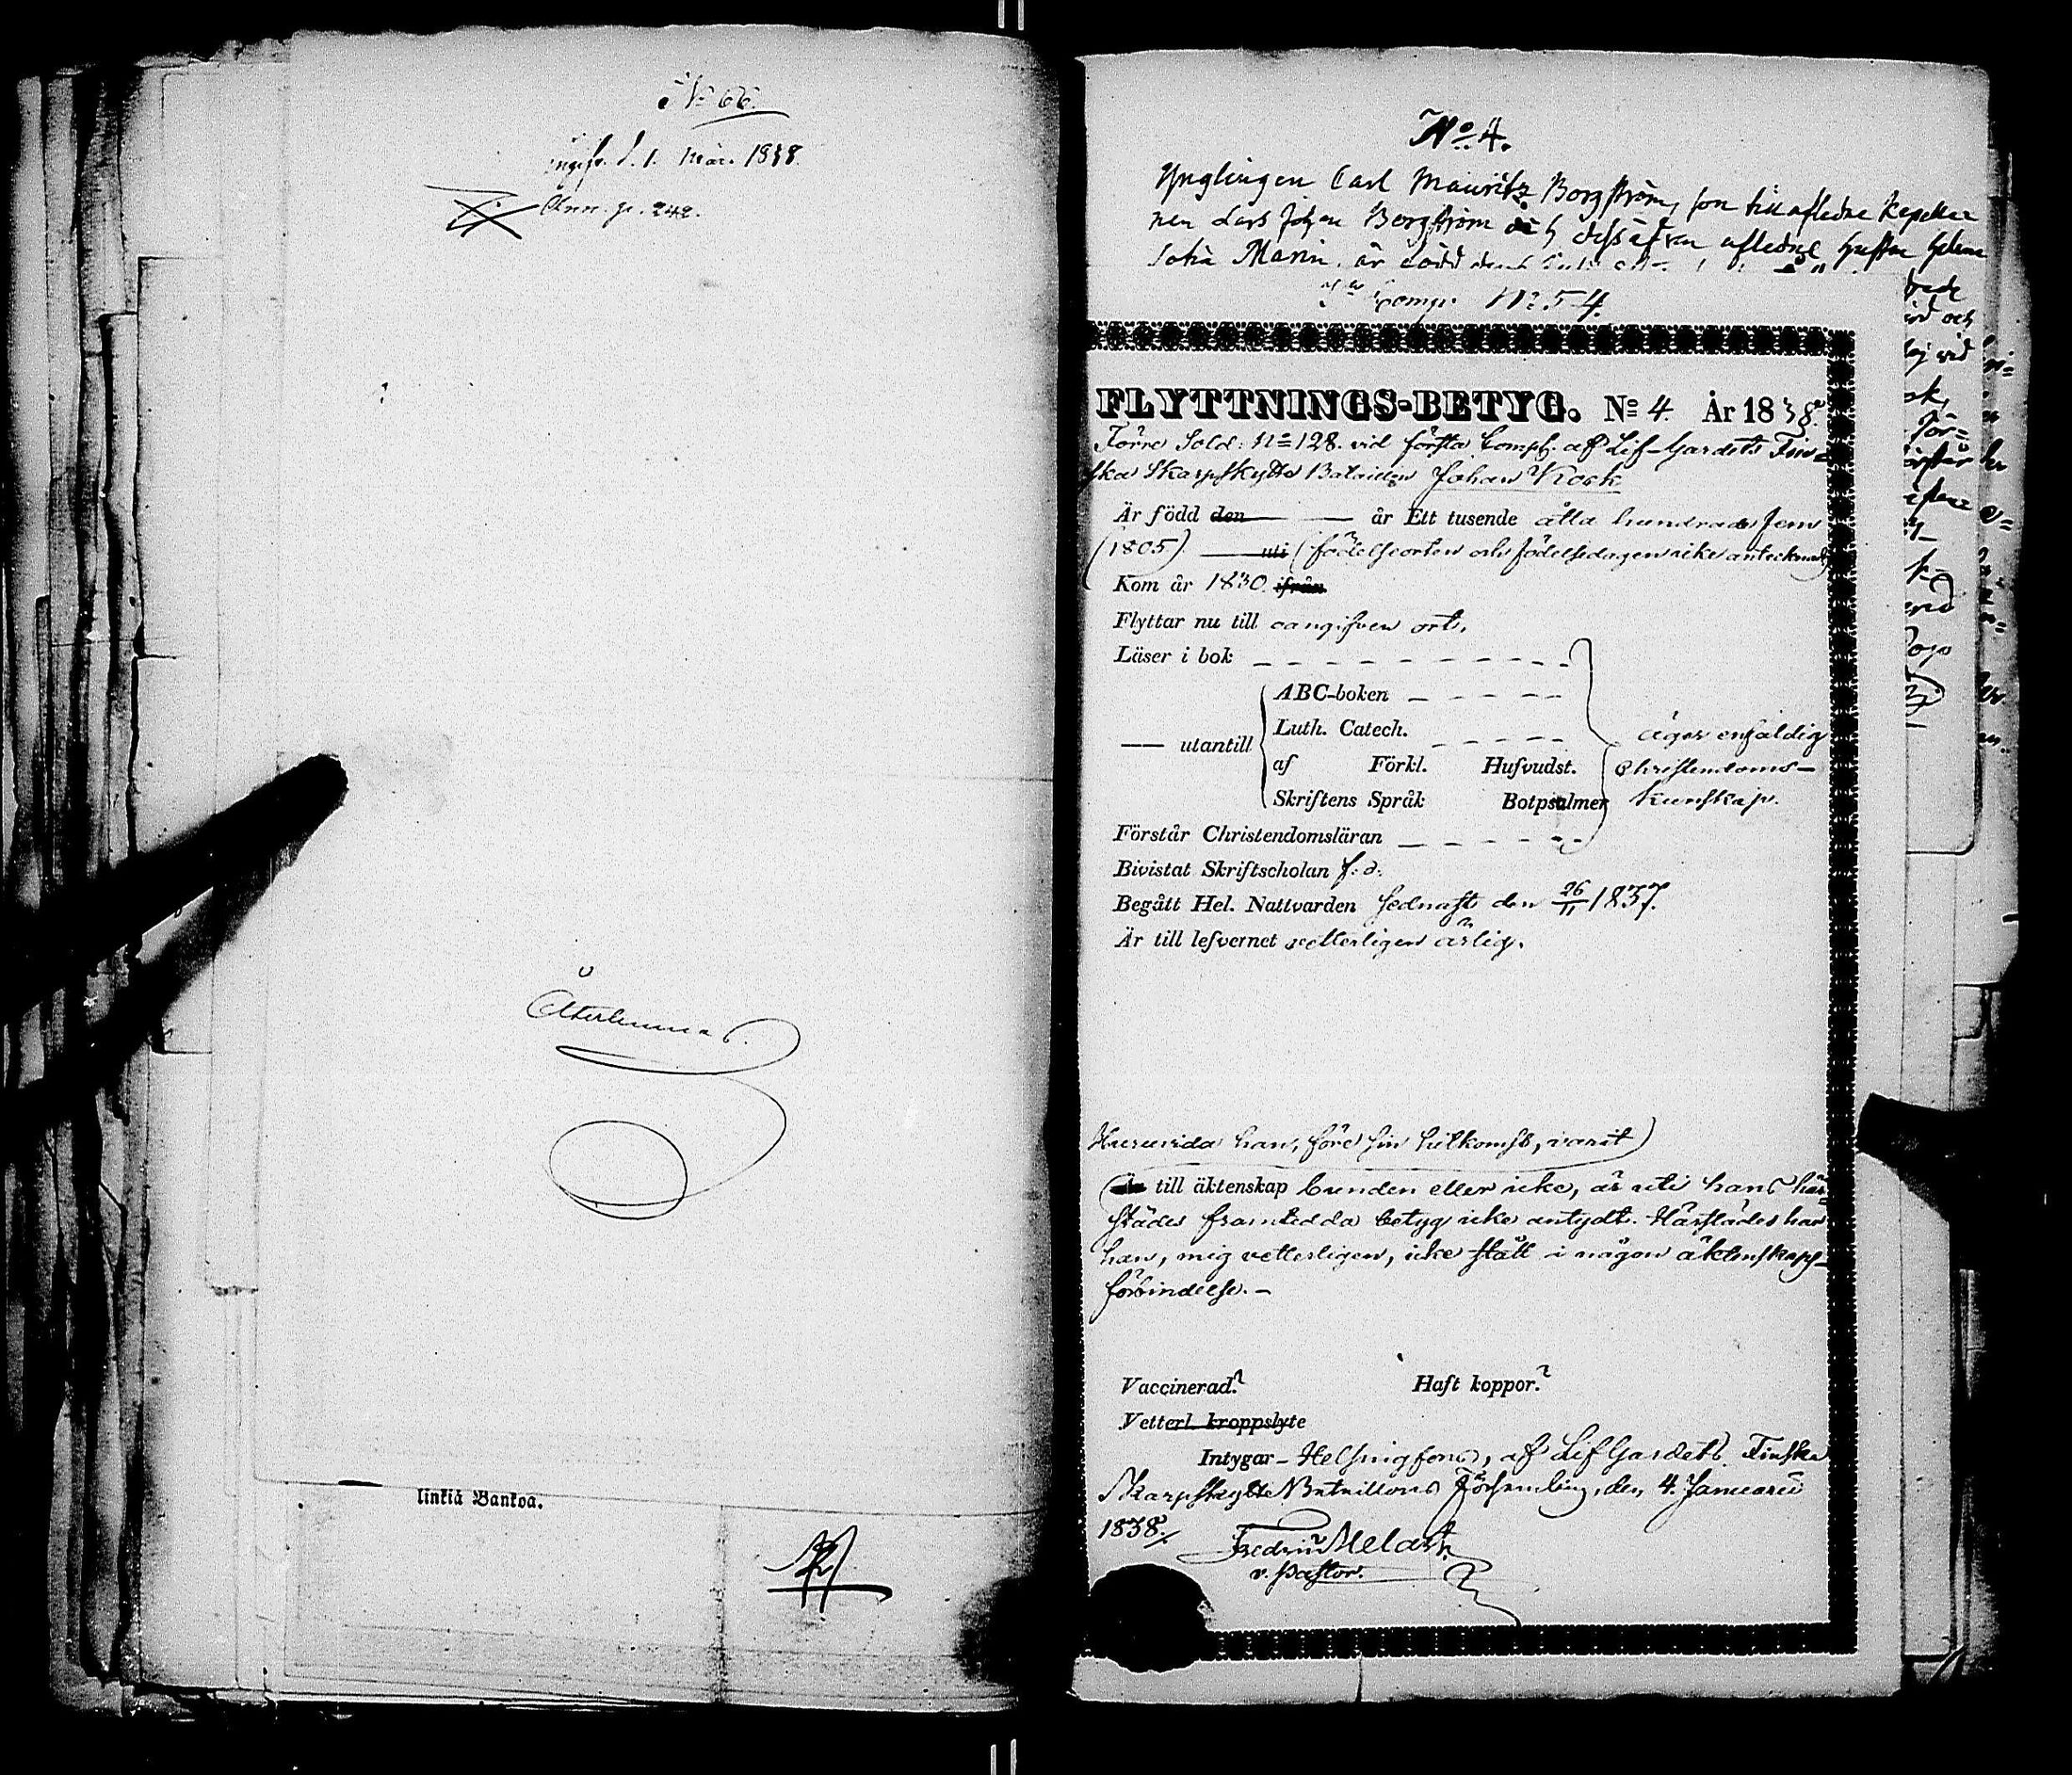 No 66.
d. 1. Mar. 1838.
Ann. p. 242.
Återlemnas.
linkiä Bankoa.
No 4.
Ynglingen Carl Mauritz Borgström, son till afledne Kapella
nen Lars Johan Borgström och dess äfven afledne hustru Helena
Sofia Marin, är född
Comp. No 54.
FLYTTNINGS-BETYG. No 4. År 1838.
Förre Sold: No 128. vid första Comp. af Lif-Gardets Fin-
ska Skarpskytte Bataillon Johan Kock
Är född den — år Ett tusende åtta hundrade fem
(1805). uti (födelseorten och födelsedagen icke antecknad)
Kom år 1830. ifrån
Flyttar nu till oangifven ort.
Läser i bok
ABC-boken
Luth. Catech.
— utantill
äger enfaldig
af Förkl. Hufvudst.
Christendoms-
Skriftens Språk Botpsalmer
kunskap.
Förstår Christendomsläran
Bivistat Skriftscholan f. d.
Begått Hel. Nattvarden sednast den 26/11 1837.
Är till lefvernet vetterligen ärlig.
Huruvida han, före sin hitkomst, varit
till äktenskap bunden eller icke, är uti hans här-
städes framtedda betyg icke antydt. Härstädes har
han, mig vetterligen, icke stått i någon äktenskaps-
förbindelse. –
Vaccinerad? Haft koppor?
Vetterl. kroppslyte
Intygar – Helsingfors, af Lif Gardets Finska
Skarpskytte Bataillons Församling, den 4. Januarii
1838./.
Fredric Melart.
v. Pastor.